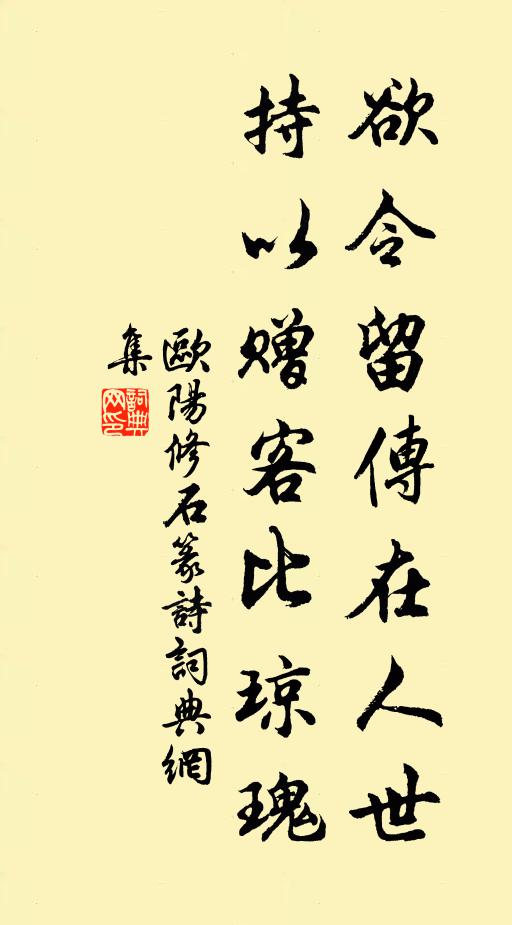 欲令留傳在人世
持以赠客比琼瑰
歐陽修石篆詩詞典網
集
詞典网印